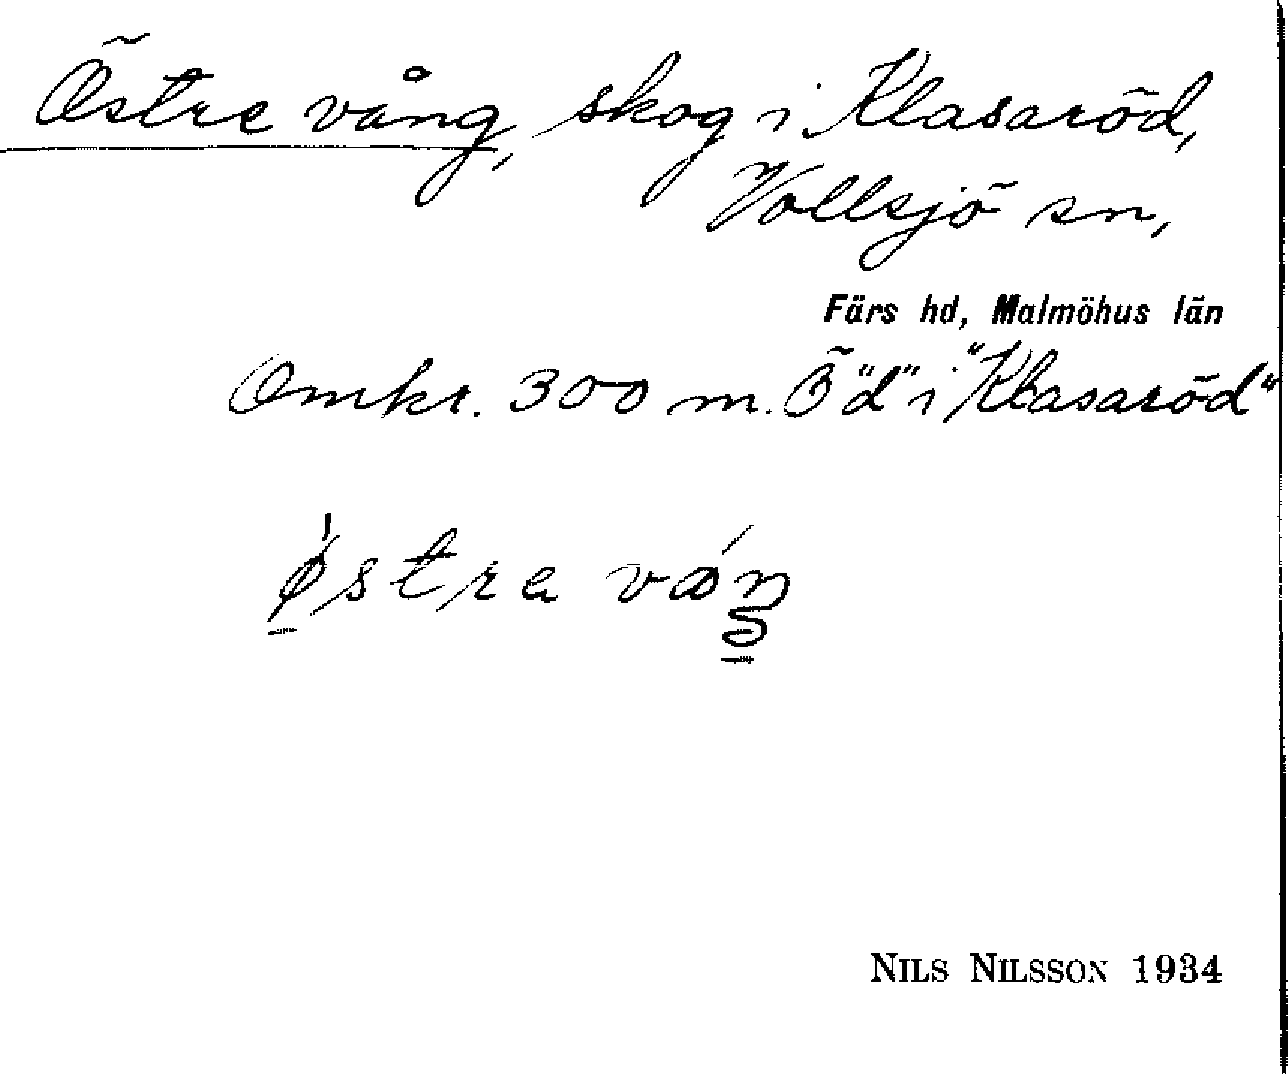 Östre vång, skog i Klasaröd,
Vollsjö sn,
Färs hd, Malmöhus län
Omkr. 300 m. Ö "d" i "Klasaröd"
ǿstra váŋ
NILS NILSSON 1934